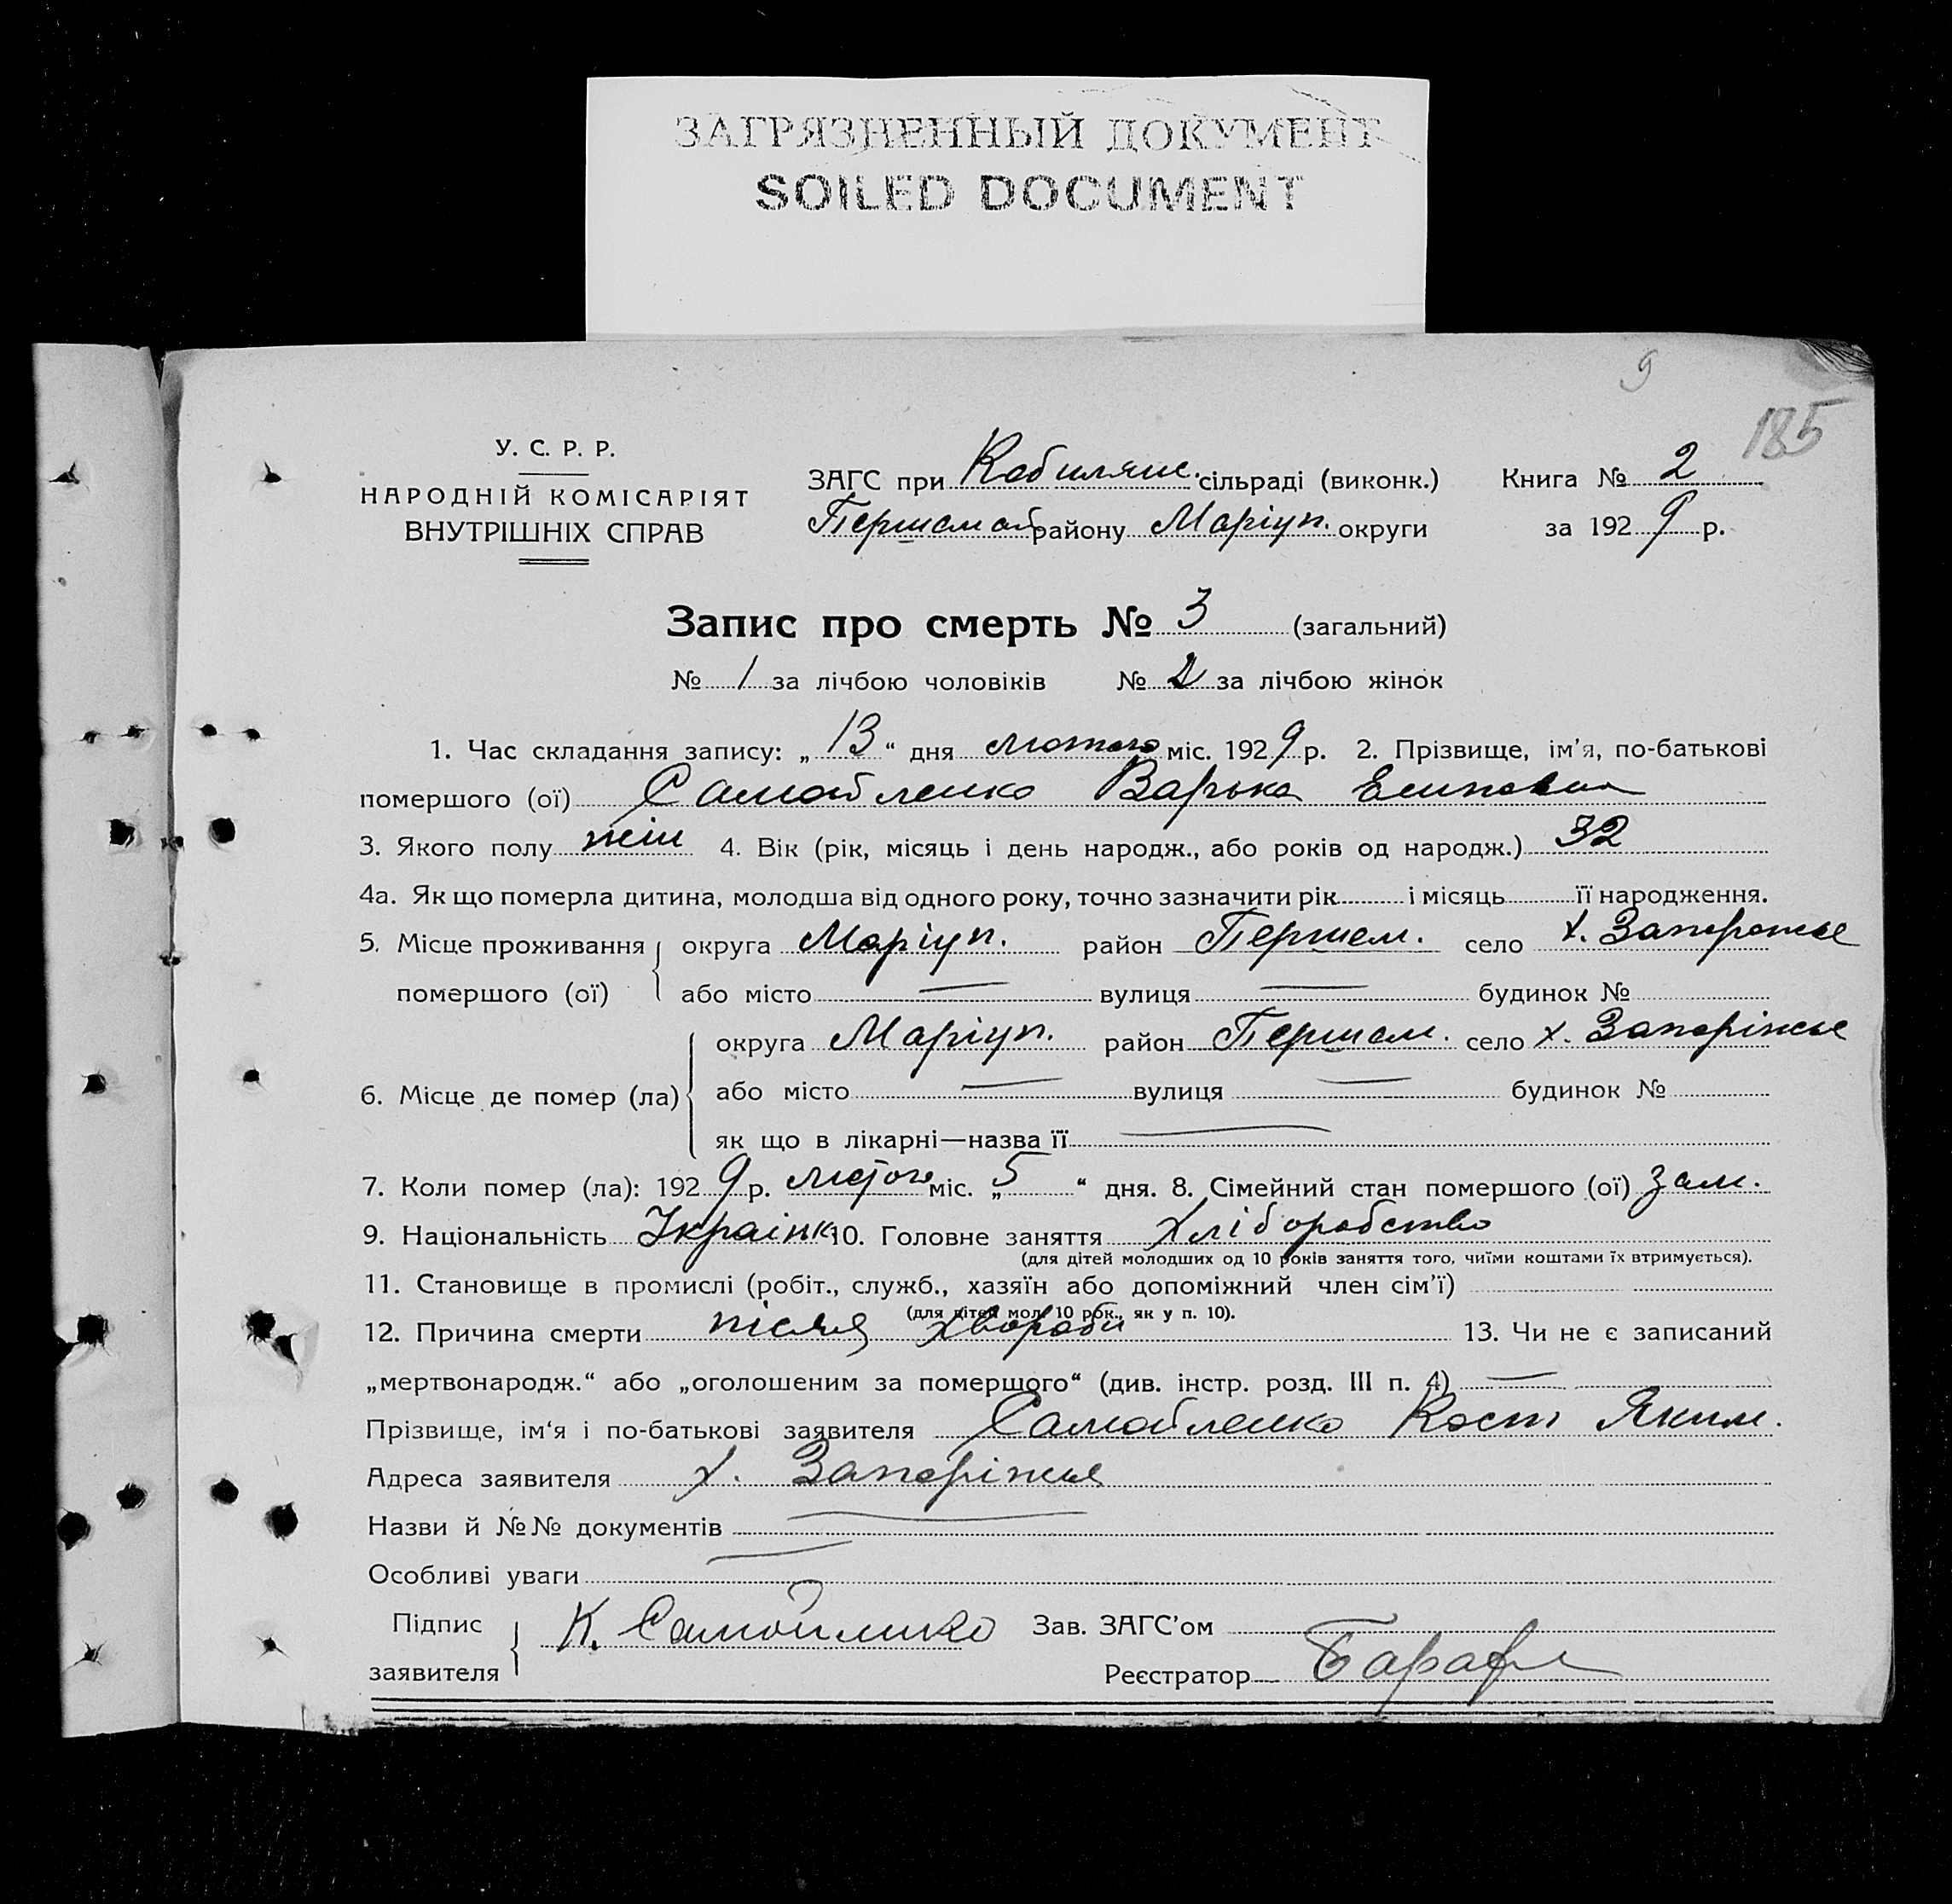 ЗАГРЯЗНЕННЫЙ ДОКУМЕНТ
SOILED DOCUMENT
9
185
У. С. Р. Р.
НАРОДНІЙ КОМІСАРІЯТ
ВНУТРІШНІХ СПРАВ
ЗАГС при Кобилянс. сільраді (виконк.) Книга № 2
Першомай району Маріуп. округи за 1929 р.
Запис про смерть № 3 (загальний)
№ 1 за лічбою чоловіків № 2 за лічбою жінок
1. Час складання запису: „13“ дня лютого міс. 1929 р. 2. Прізвище, ім'я, по-батькові
помершого (ої) Самойленко Варька
3. Якого полу жін 4. Вік (рік, місяць і день народж., або років од народж.) 32
4а. Як що померла дитина, молодша від одного року, точно зазначити рік і місяць її народження.
5. Місце проживання округа Маріуп. район Першом. село х. Запорожье
помершого (ої) або місто — вулиця — будинок №
округа Маріуп. район Першом. село х. Запоріжье
6. Місце де помер (ла) або місто — вулиця — будинок №
як що в лікарні—назва її —
7. Коли помер (ла): 1929 р. лютого міс. „5“ дня. 8. Сімейний стан помершого (ої) зам.
9. Національність Українк 10. Головне заняття хліборобство
(для дітей молодших од 10 років заняття того, чиїми коштами їх втримується).
11. Становище в промислі (робіт., служб., хазяїн або допоміжний член сім'ї)
(для дітей мол. 10 рок., як у п. 10).
12. Причина смерти після хвороби 13. Чи не є записаний
„мертвонародж.“ або „оголошеним за померщого“ (див. інстр. розд. III п. 4) —
Прізвище, ім'я і по-батькові заявителя Самойленко Кост Яким.
Адреса заявителя х. Запоріжья
Назви й №№ документів —
Особливі уваги —
Підпис К. Самойленко Зав. ЗАГС'ом
заявителя Реєстратор